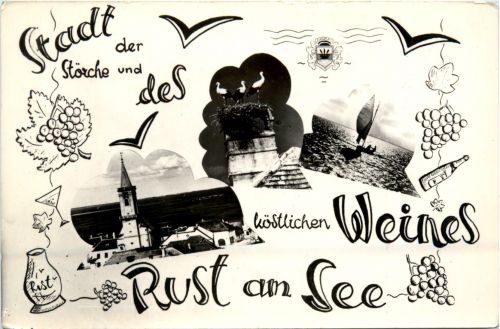 Stadt der
Störche und des
köstlichen Weines
Rust am See
Rust